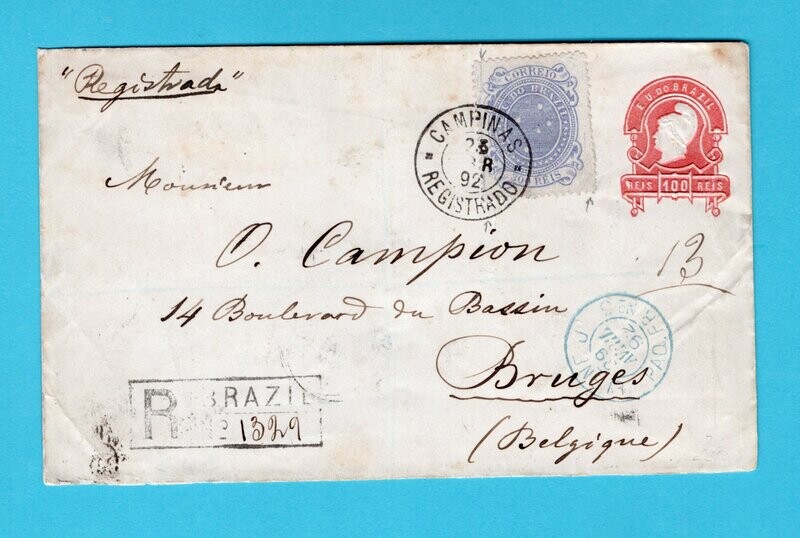 "Registrada"
CORREIO
E.U. DO BRAZIL
REIS
E.U. DO BRAZIL
REIS 100 REIS
CAMPINAS
92
REGISTRADO
Monsieur
O. Campion
13
14 Boulevard du Bassin
Bruges
(Belgique)
R BRAZIL
No 1329